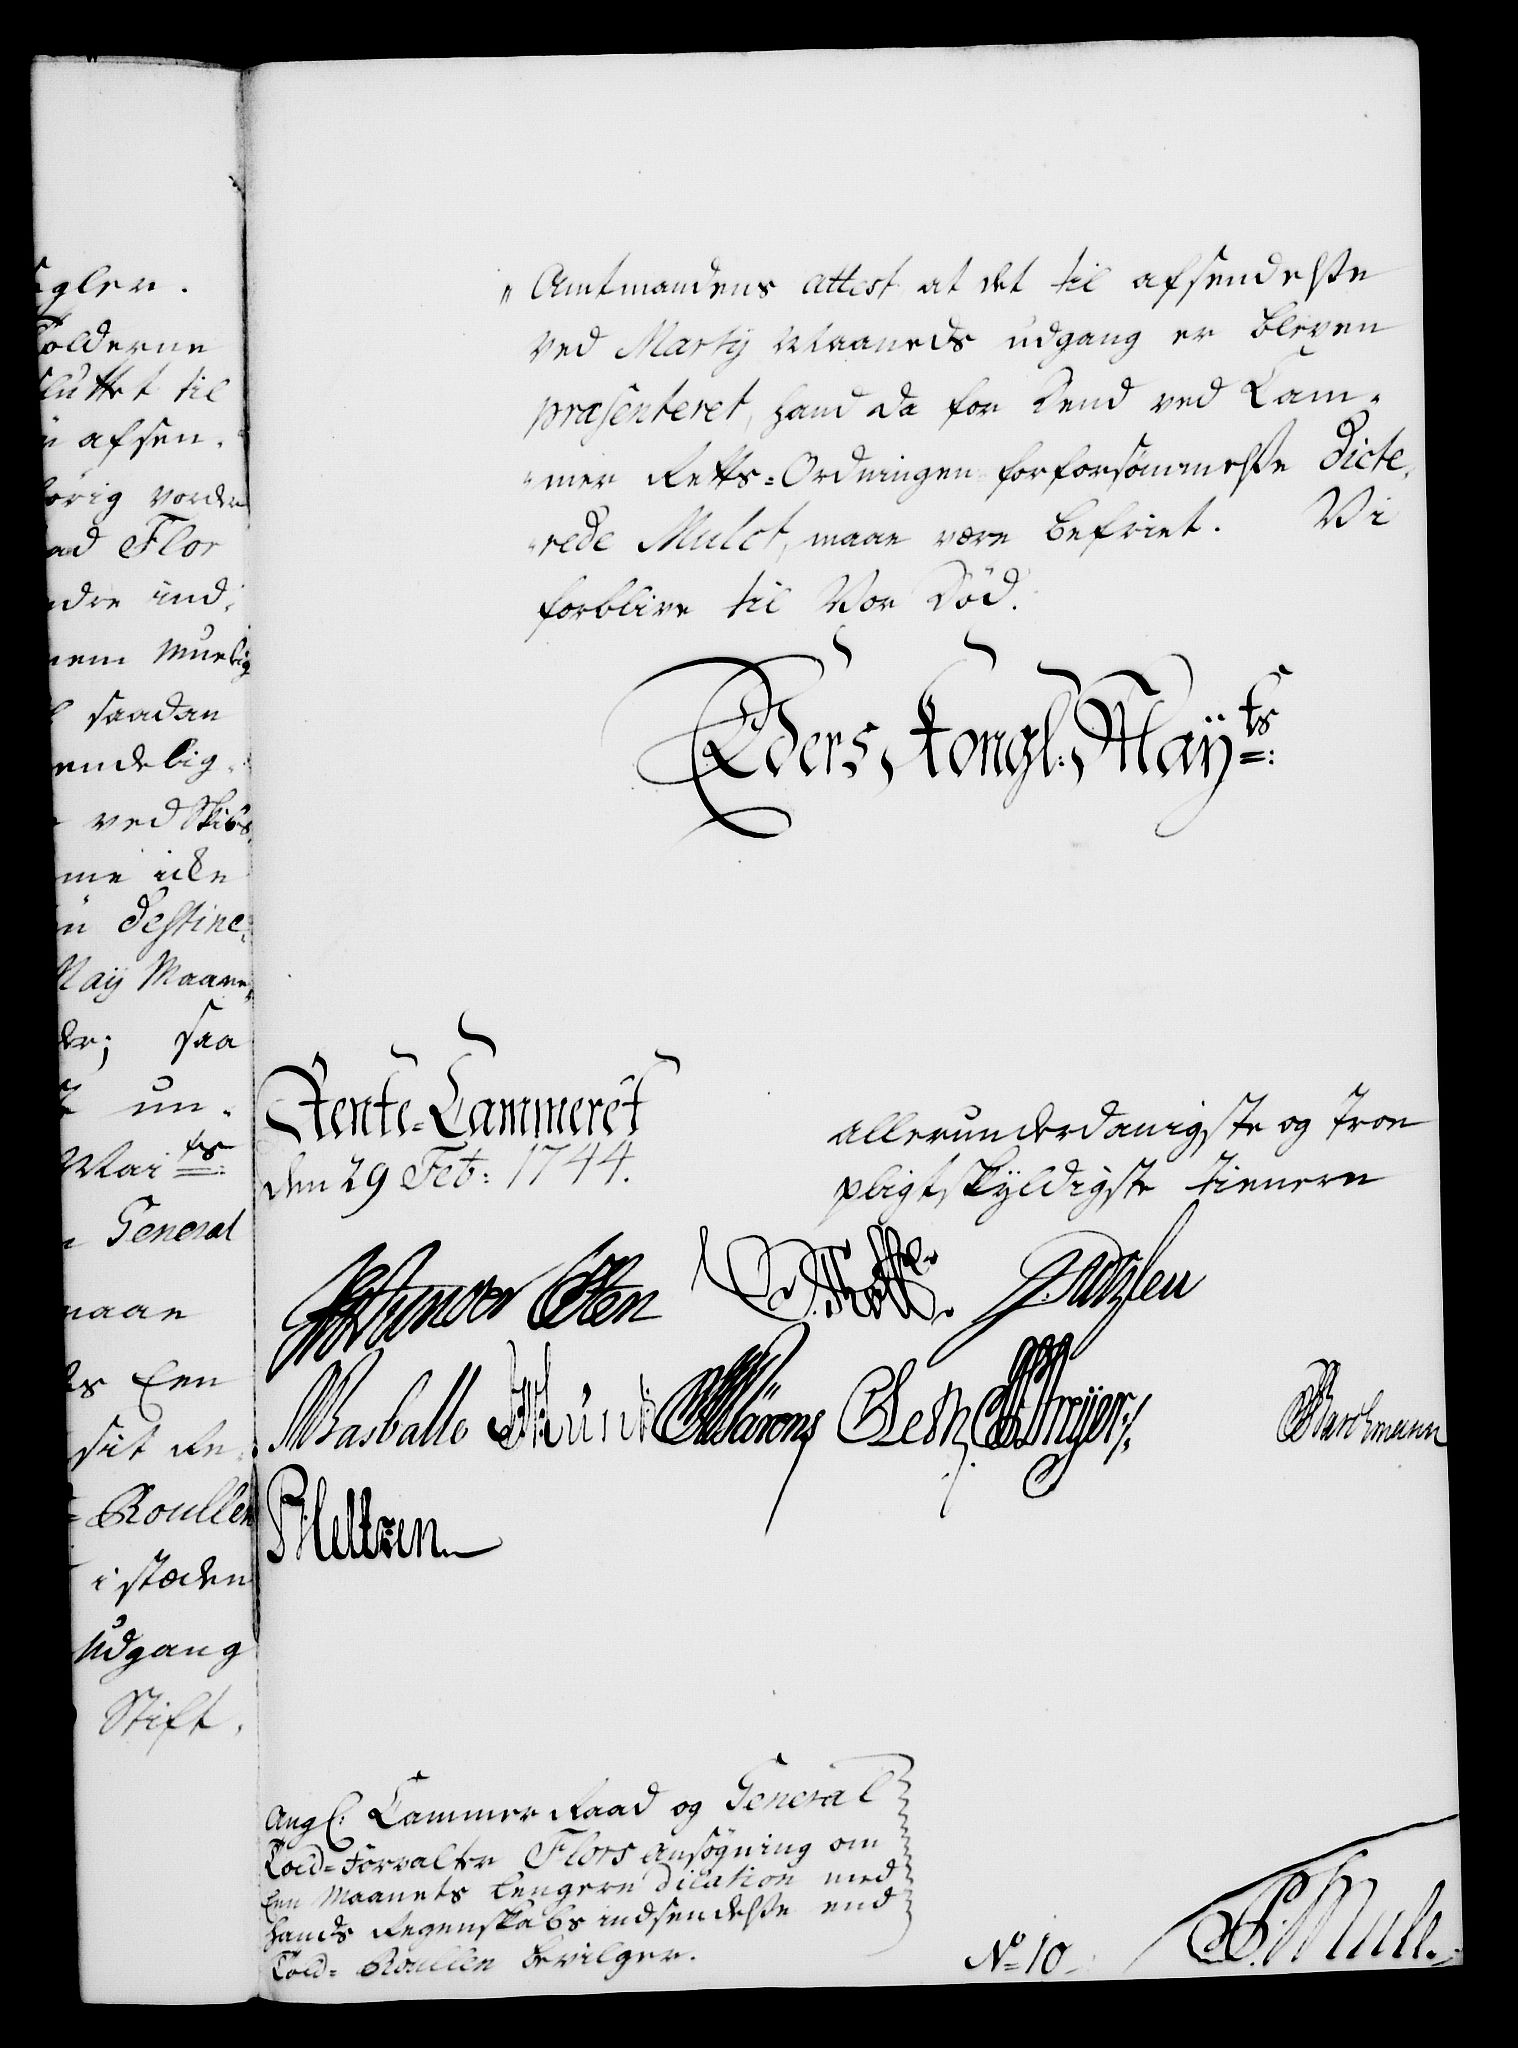 gler.
tolderne
sluttet til
afsen-
hörig vorder
ad Flor
ndre ind-
nem muelig
saadan
endelig-
ved Skibs
me icke
destine-
May Maane-
der; saa
un-
Mai ts:
General
maae
ts Een
sit Re-
Roullen
i stæden
Udgang
Stift-
" Amtmandens attest at det til afsendelse
ved Marty Maaneds udgang er bleven
præsenteret, hand da for dend ved Cam-
-mer Retts-Ordningen forforsömmelse dicte-
-rede Mulct, maae være befriet. Vi
forblive til Vor Död.
Eders Kongl: May ts:
Rente-Cammeret
den 29 Feb: 1744.
allerunderdanigste og troe
pligtskÿldigste tienere
Sten
Masballe
Barchmann
PHeltzen
Ang: Cammer Raad og General
Told-Forvalter Flors ansögning om
Een Maanets lengere dilation med
hands Regenskabs indsendelse end
Told-Roullen bevilger.
No 10
Mule.